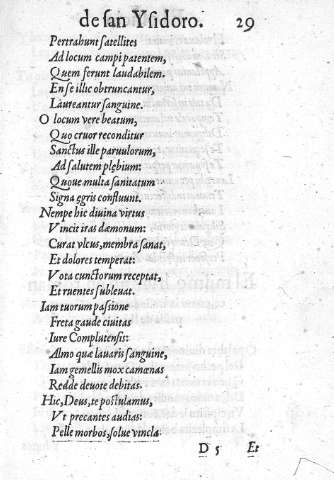 de san Ysidoro. 29
Pertrahunt satellites
Ad locum campi patentem,
Quem ferunt laudabilem.
En se illic obtruncantur,
Laureantur sanguine.
O locum vere beatum,
Quo cruor reconditur
Sanctus ille paruulorum,
Ad salutem plebium:
Quoue multa sanitatum
Signa egris confluunt.
Nempe hic diuina virtus
Vincit iras dæmonum:
Curat vlcus, membra sanat,
Et dolores temperat:
Vota cunctorum receptat,
Et ruentes subleuat.
Iam tuorum passione
Freta gaude ciuitas
Iure Complutensis:
Almo quæ lauaris sanguine,
Iam gemellis mox camœnas
Redde deuote debitas.
Hic, Deus, te postulamus,
Vt precantes audias:
Pelle morbos, solue vincla
D 5 Et